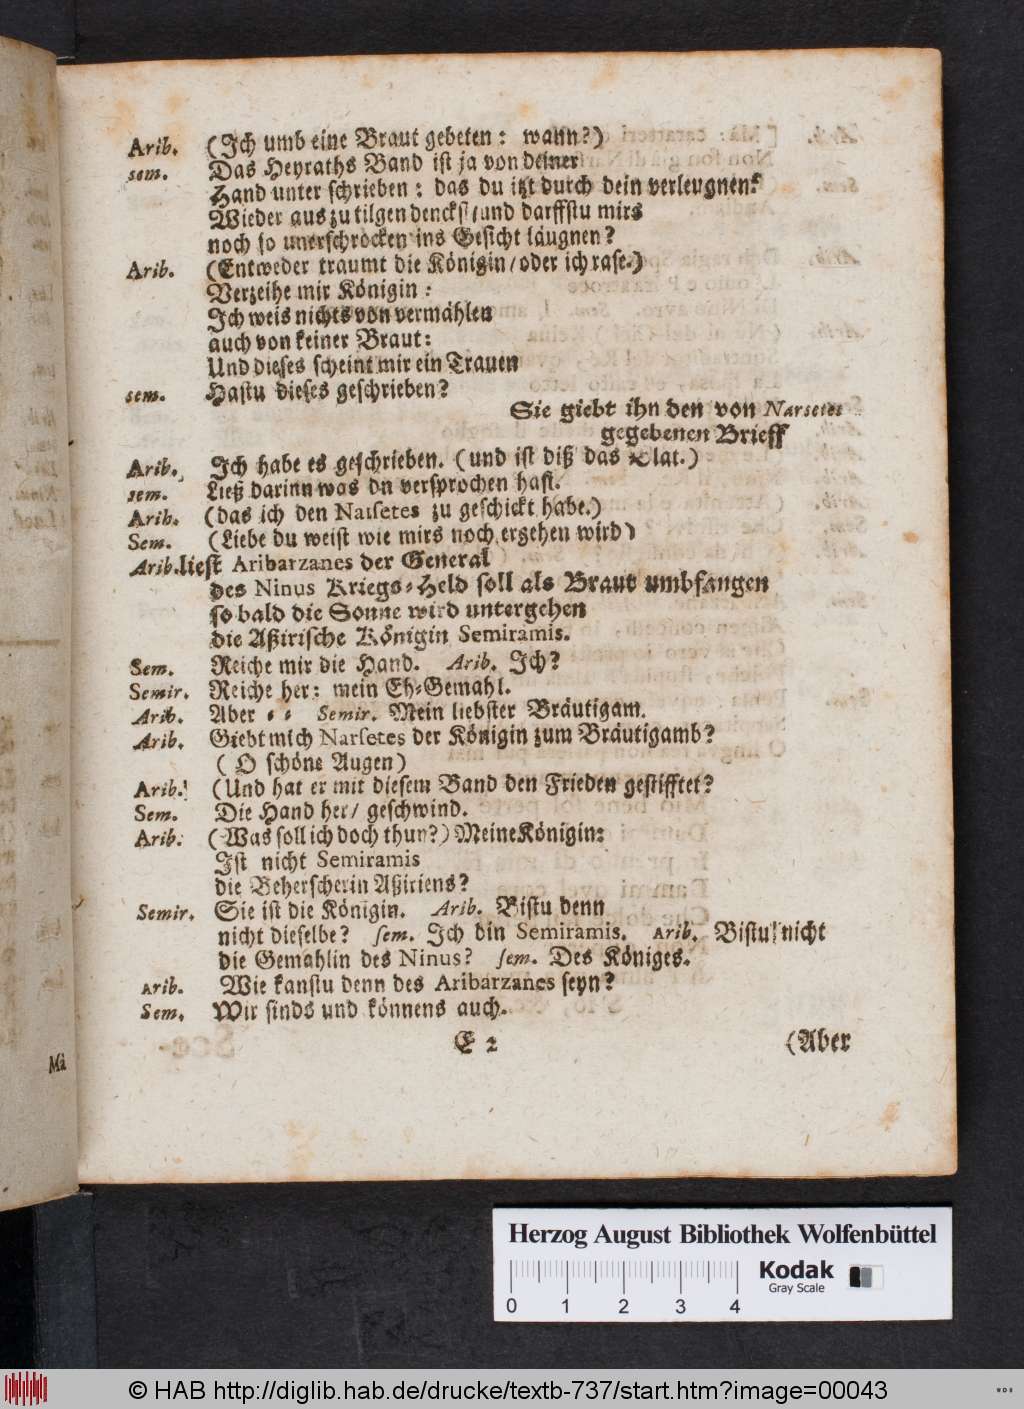 Arib. (Ich umb eine Braut gebeten: wann?)
sem. Das Heyraths Band ist ja von deiner
Hand unter schrieben: das du itzt durch dein verleugnen?
Wieder aus zu tilgen denckst/und darffstu mirs
noch so unerschrocken ins Gesicht läugnen?
Arib. (Entweder traumt die Königin/oder ich rase.)
Verzeihe mir Königin:
Ich weis nichts von vermählen
auch von keiner Braut:
Und dieses scheint mir ein Trauen
sem. Hastu dieses geschrieben?
Sie giebt ihn den von Narsetes
gegebenen Brieff
Arib. Ich habe es geschrieben. (und ist diß das Blat.)
sem. Ließ darinn was dn versprochen hast.
Arib. (das ich den Narsetes zu geschickt habe.)
Sem. (Liebe du weist wie mirs noch ergehen wird)
Arib. liest Aribarzanes der General
des Ninus Kriegs-Held soll als Braut umbfangen
so bald die Sonne wird untergehen
die Aßirische Königin Semiramis.
Sem. Reiche mir die Hand. Arib. Ich?
Semir. Reiche her: mein Eh-Gemahl.
Arib. Aber - - Semir. Mein liebster Bräutigam.
Arib. Giebt mich Narsetes der Königin zum Bräutigamb?
(O schöne Augen)
Arib. (Und hat er mit diesem Band den Frieden gestifftet?
Sem. Die Hand her/ geschwind.
Arib. (Was soll ich doch thun?) Meine Königin:
Ist nicht Semiramis
die Beherscherin Aßiriens?
Semir. Sie ist die Königin. Arib. Bistu denn
nicht dieselbe? sem. Ich bin Semiramis. Arib. Bistu nicht
die Gemahlin des Ninus? sem. Des Königes.
Arib. Wie kanstu denn des Aribarzanes seyn?
Sem. Wir sinds und könnens auch.
E 2 (Aber
Mà
Herzog August Bibliothek Wolfenbüttel
Kodak
Gray Scale
0 1 2 3 4
© HAB http://diglib.hab.de/drucke/textb-737/start.htm?image=00043